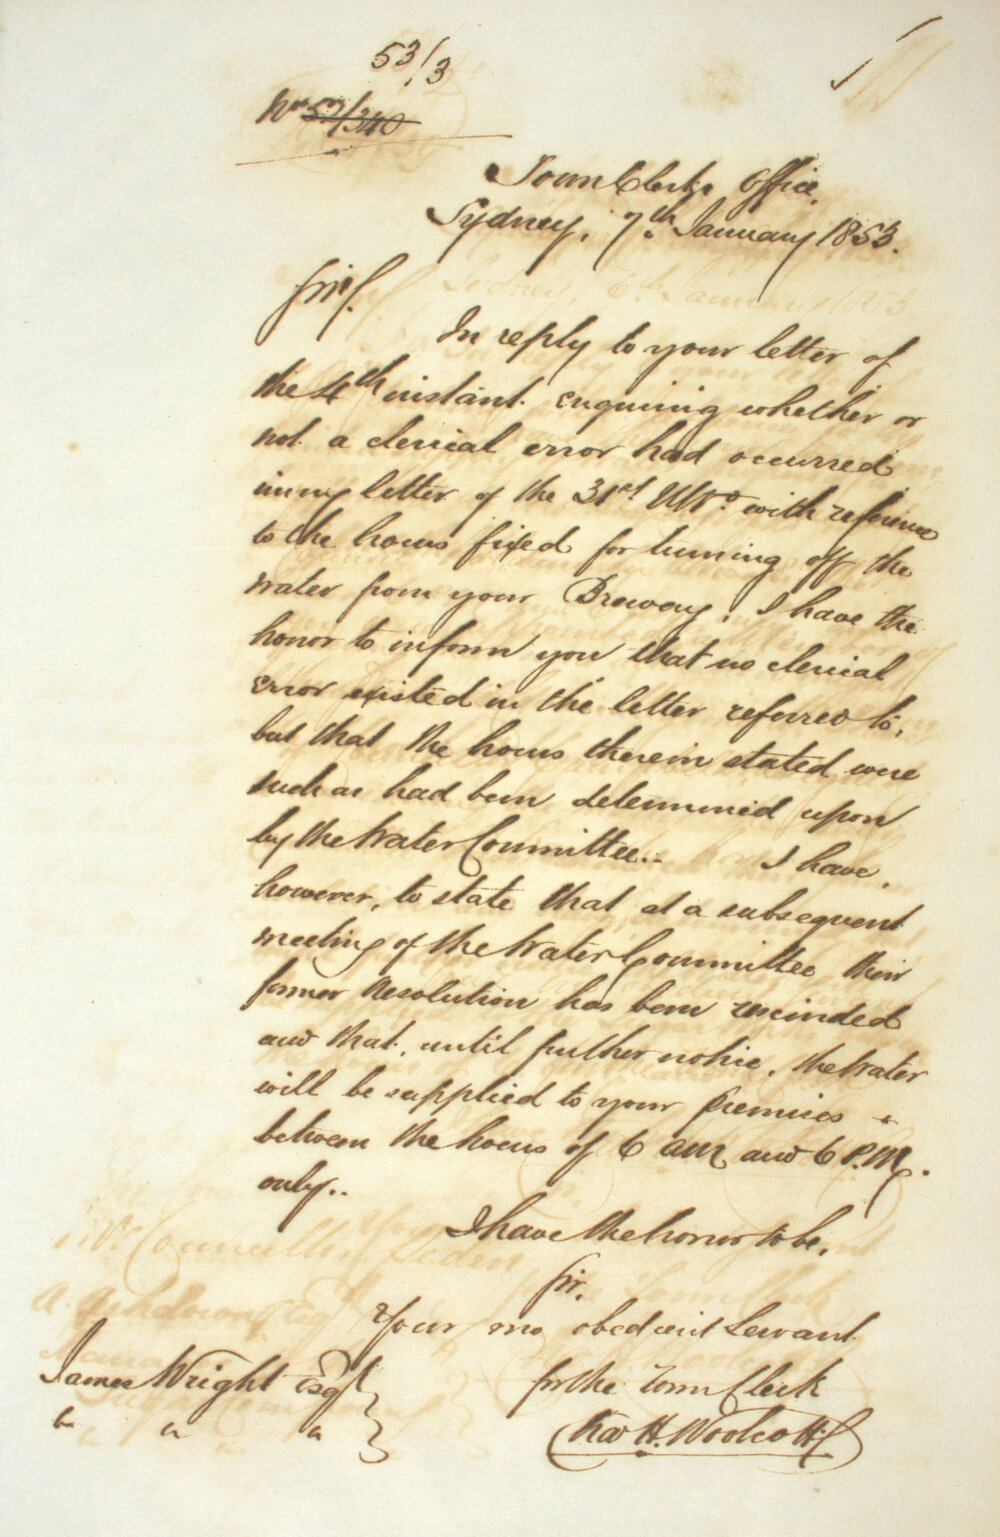 53/3
No 52/340
Town Clerks Office,
Sydney, 7th January 1853.
Sir,
In reply to your letter of
the 4th instant enquiring whether or
not a clerical error had occurred
in my letter of the 31st Ulto. with reference
to the hours fixed for turning off the
water from your Brewery, I have the
honor to inform you that no clerical
error existed in the letter referred to,
but that the hours therein stated were
such as had been determined upon
by the Water Committee.. I have,
however, to state that at a subsequent
meeting of the Water Committee their
former Resolution has been rescinded
and that, until further notice, the Water
will be supplied to your premises
between the hours of 6 AM and 6 P.M.
only..
I have the honor to be,
Sir,
Your mo obedient Servant
for the Town Clerk
Chas H. Woolcott
James Wright Esqr
" " "